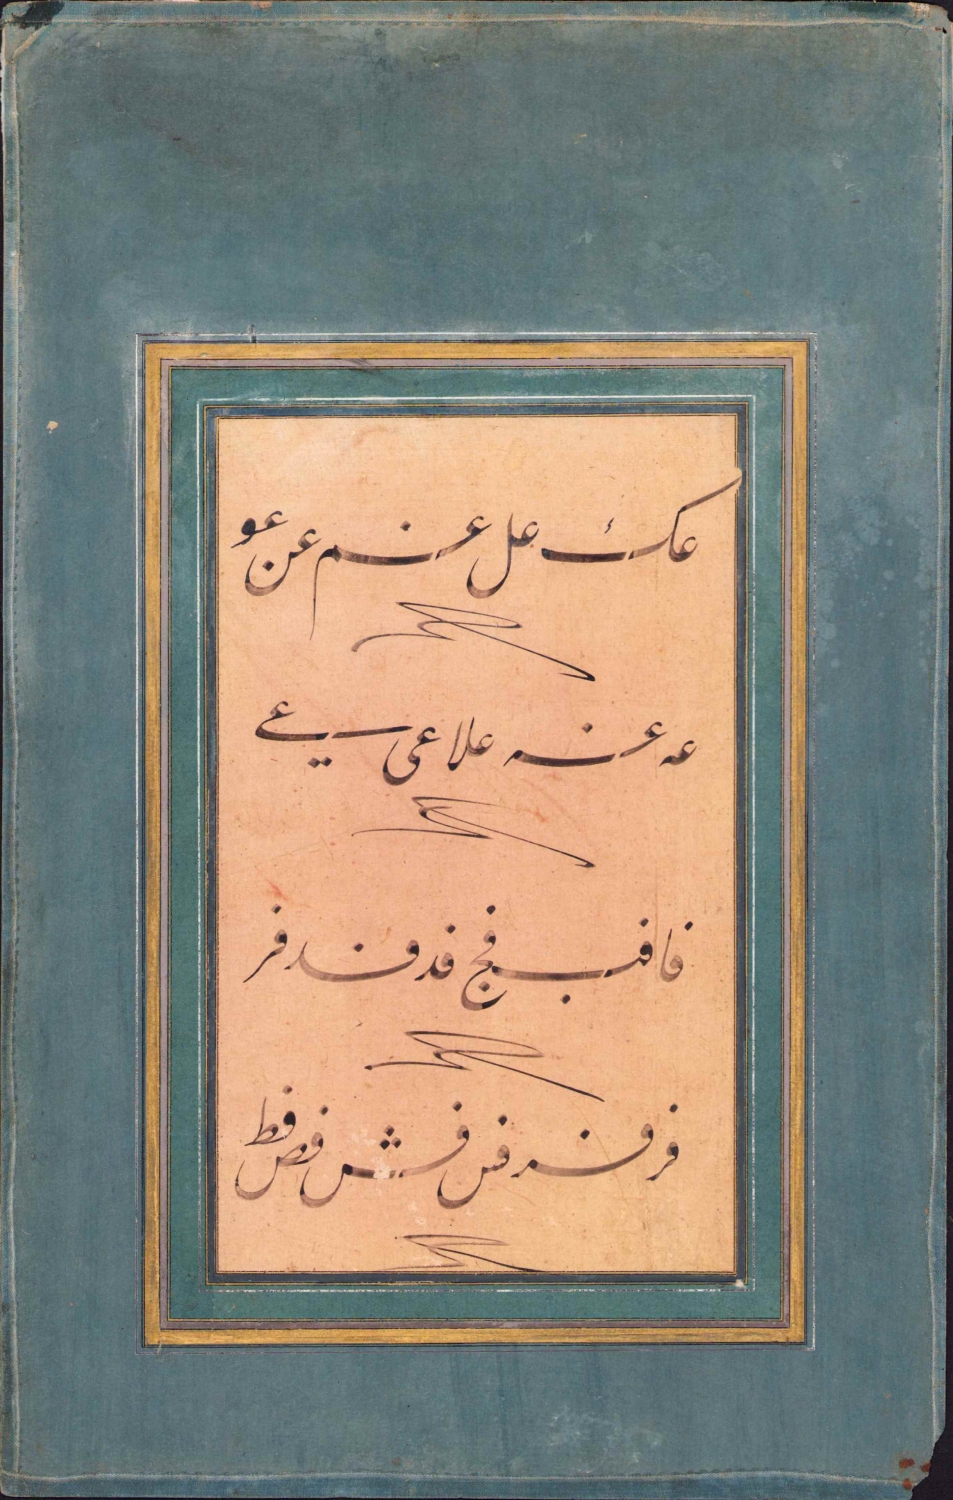 عک عل عم عن عو
عه عنه علا عی عے
فا فب فج فد فند فر
فر فند فس فش فص فط